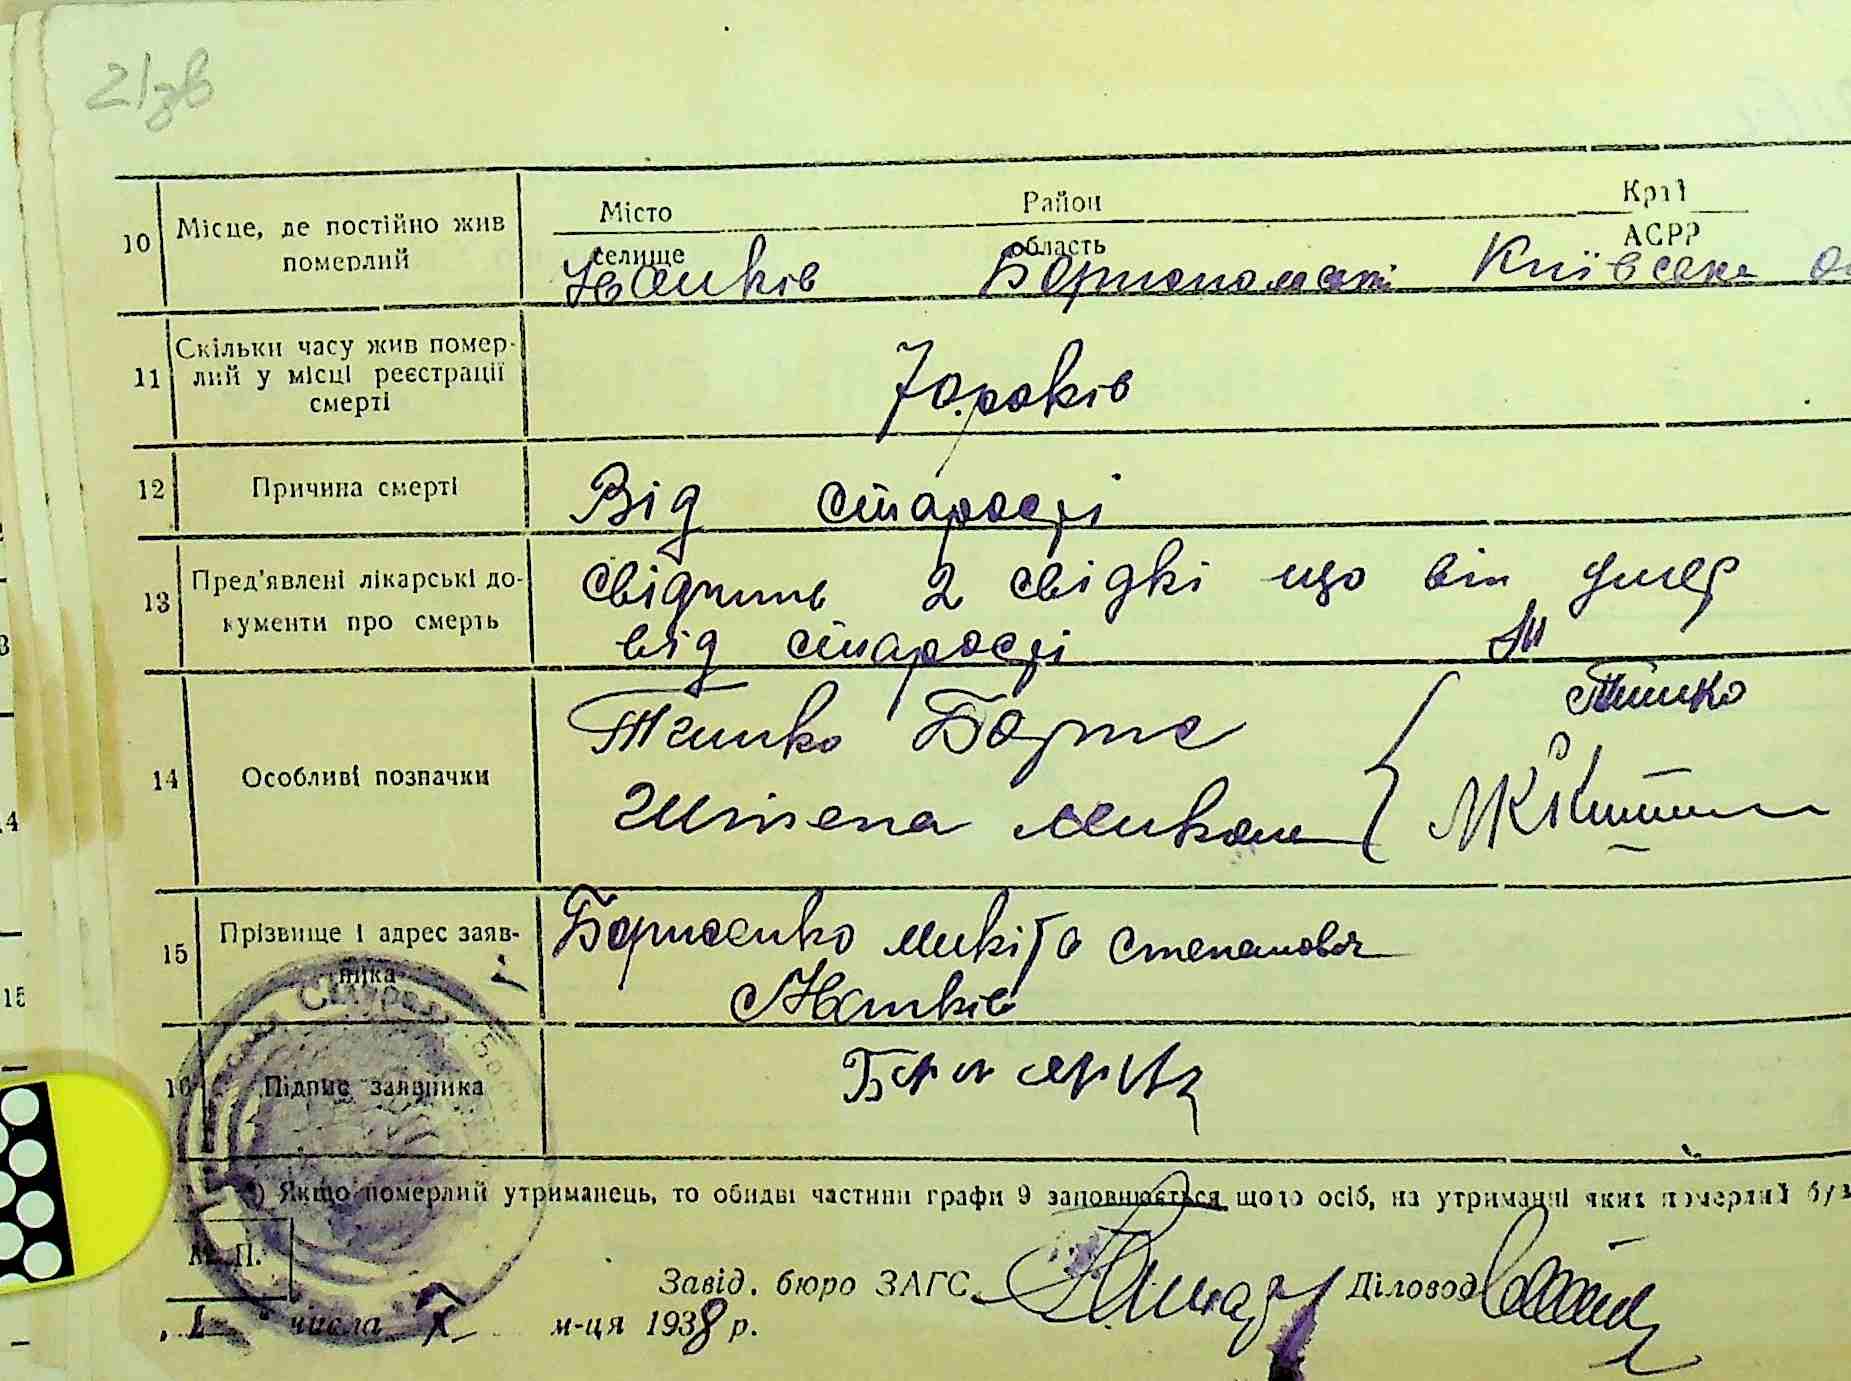 21зв
10 Місце, де постійно жив померлий
Місто Район Край
селище область АСРР
Іванків Бориспольський Київська об
11 Скільки часу жив помер-
лий у місці реєстрації
смерті
70 років
12 Причина смерті Від старості
13 Пред'явлені лікарські до-
кументи про смерть
свідчить 2 свідкі що він умер
від старості
14 Особливі позначки
Тишко Борис Тишко
Микола
15 Прізвище і адрес заяв-
ника
Борисенко Микіта Степанович
Іванків
16 Підпис заявника
) Якщо померлий утриманець, то обидві частини графи 9 заповнюється щодо осіб, на утриманні яких померлий був
М. П.
Завід. бюро ЗАГС Діловод
числа м-ця 1938 р.